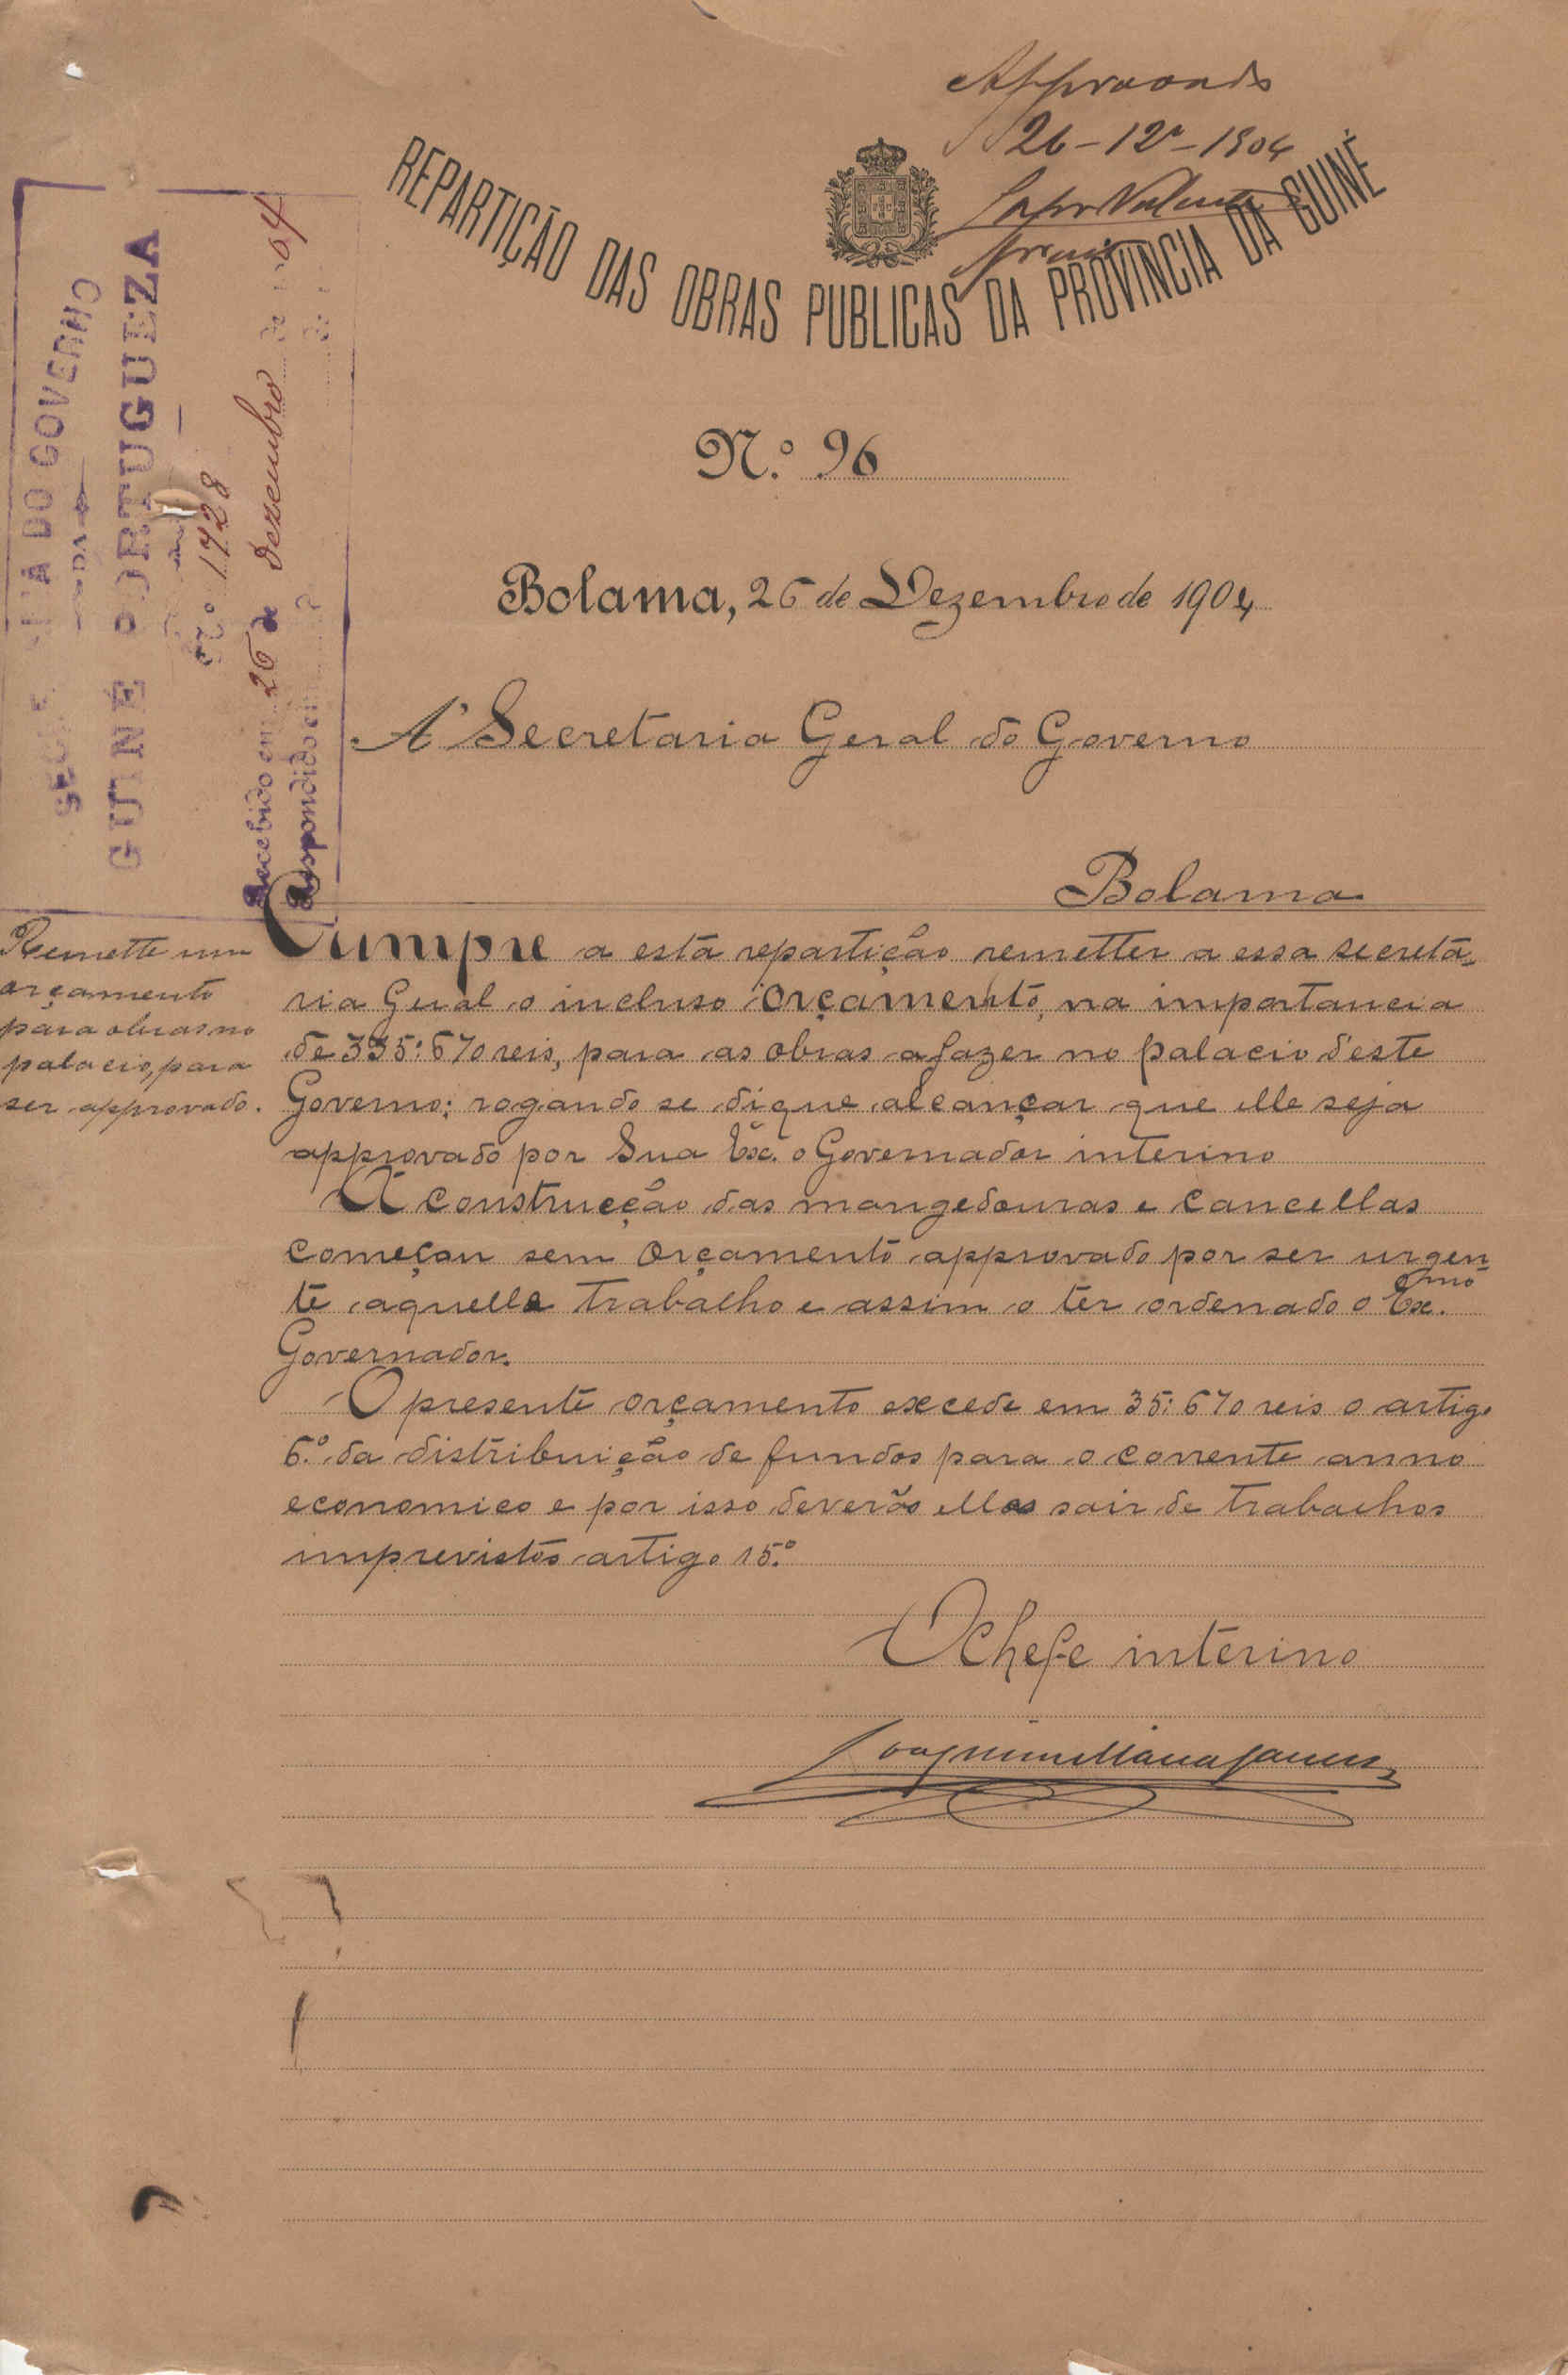 Approvado
26-12º-1904
REPARTIÇÃO DAS OBRAS PUBLICAS DA PROVINCIA DA GUINÉ
DO GOVERNO
DA
GUINÉ PORTUGUEZA
N.º 1728
Recebido em 26 de Dezembro de 1904
Respondido em de
N.º 96
Bolama, 26 de Dezembro de 1904
A' Secretaria Geral do Governo
Bolama
Remette um
orçamento
para obras no
palacio, para
ser approvado.
Cumpre a esta repartição remetter a essa secreta-
ria Geral o incluso orçamento, na importancia
de 335:670 reis, para as obras a fazer no palacio d'este
Governo; rogando se digne alcançar que elle seja
approvado por Sua Ex. o Governador interino
A construcção das mangedouras e cancellas
começou sem orçamento approvado por ser urgen
te aquelle trabalho e assim o ter ordenado o Ex.mo
Governador.
O presente orçamento excede em 35:670 reis o artigo
6.º da distribuição de fundos para o corrente anno
economico e por isso deverão elles sair de trabalhos
imprevistos artigo 15.º
O Chefe interino